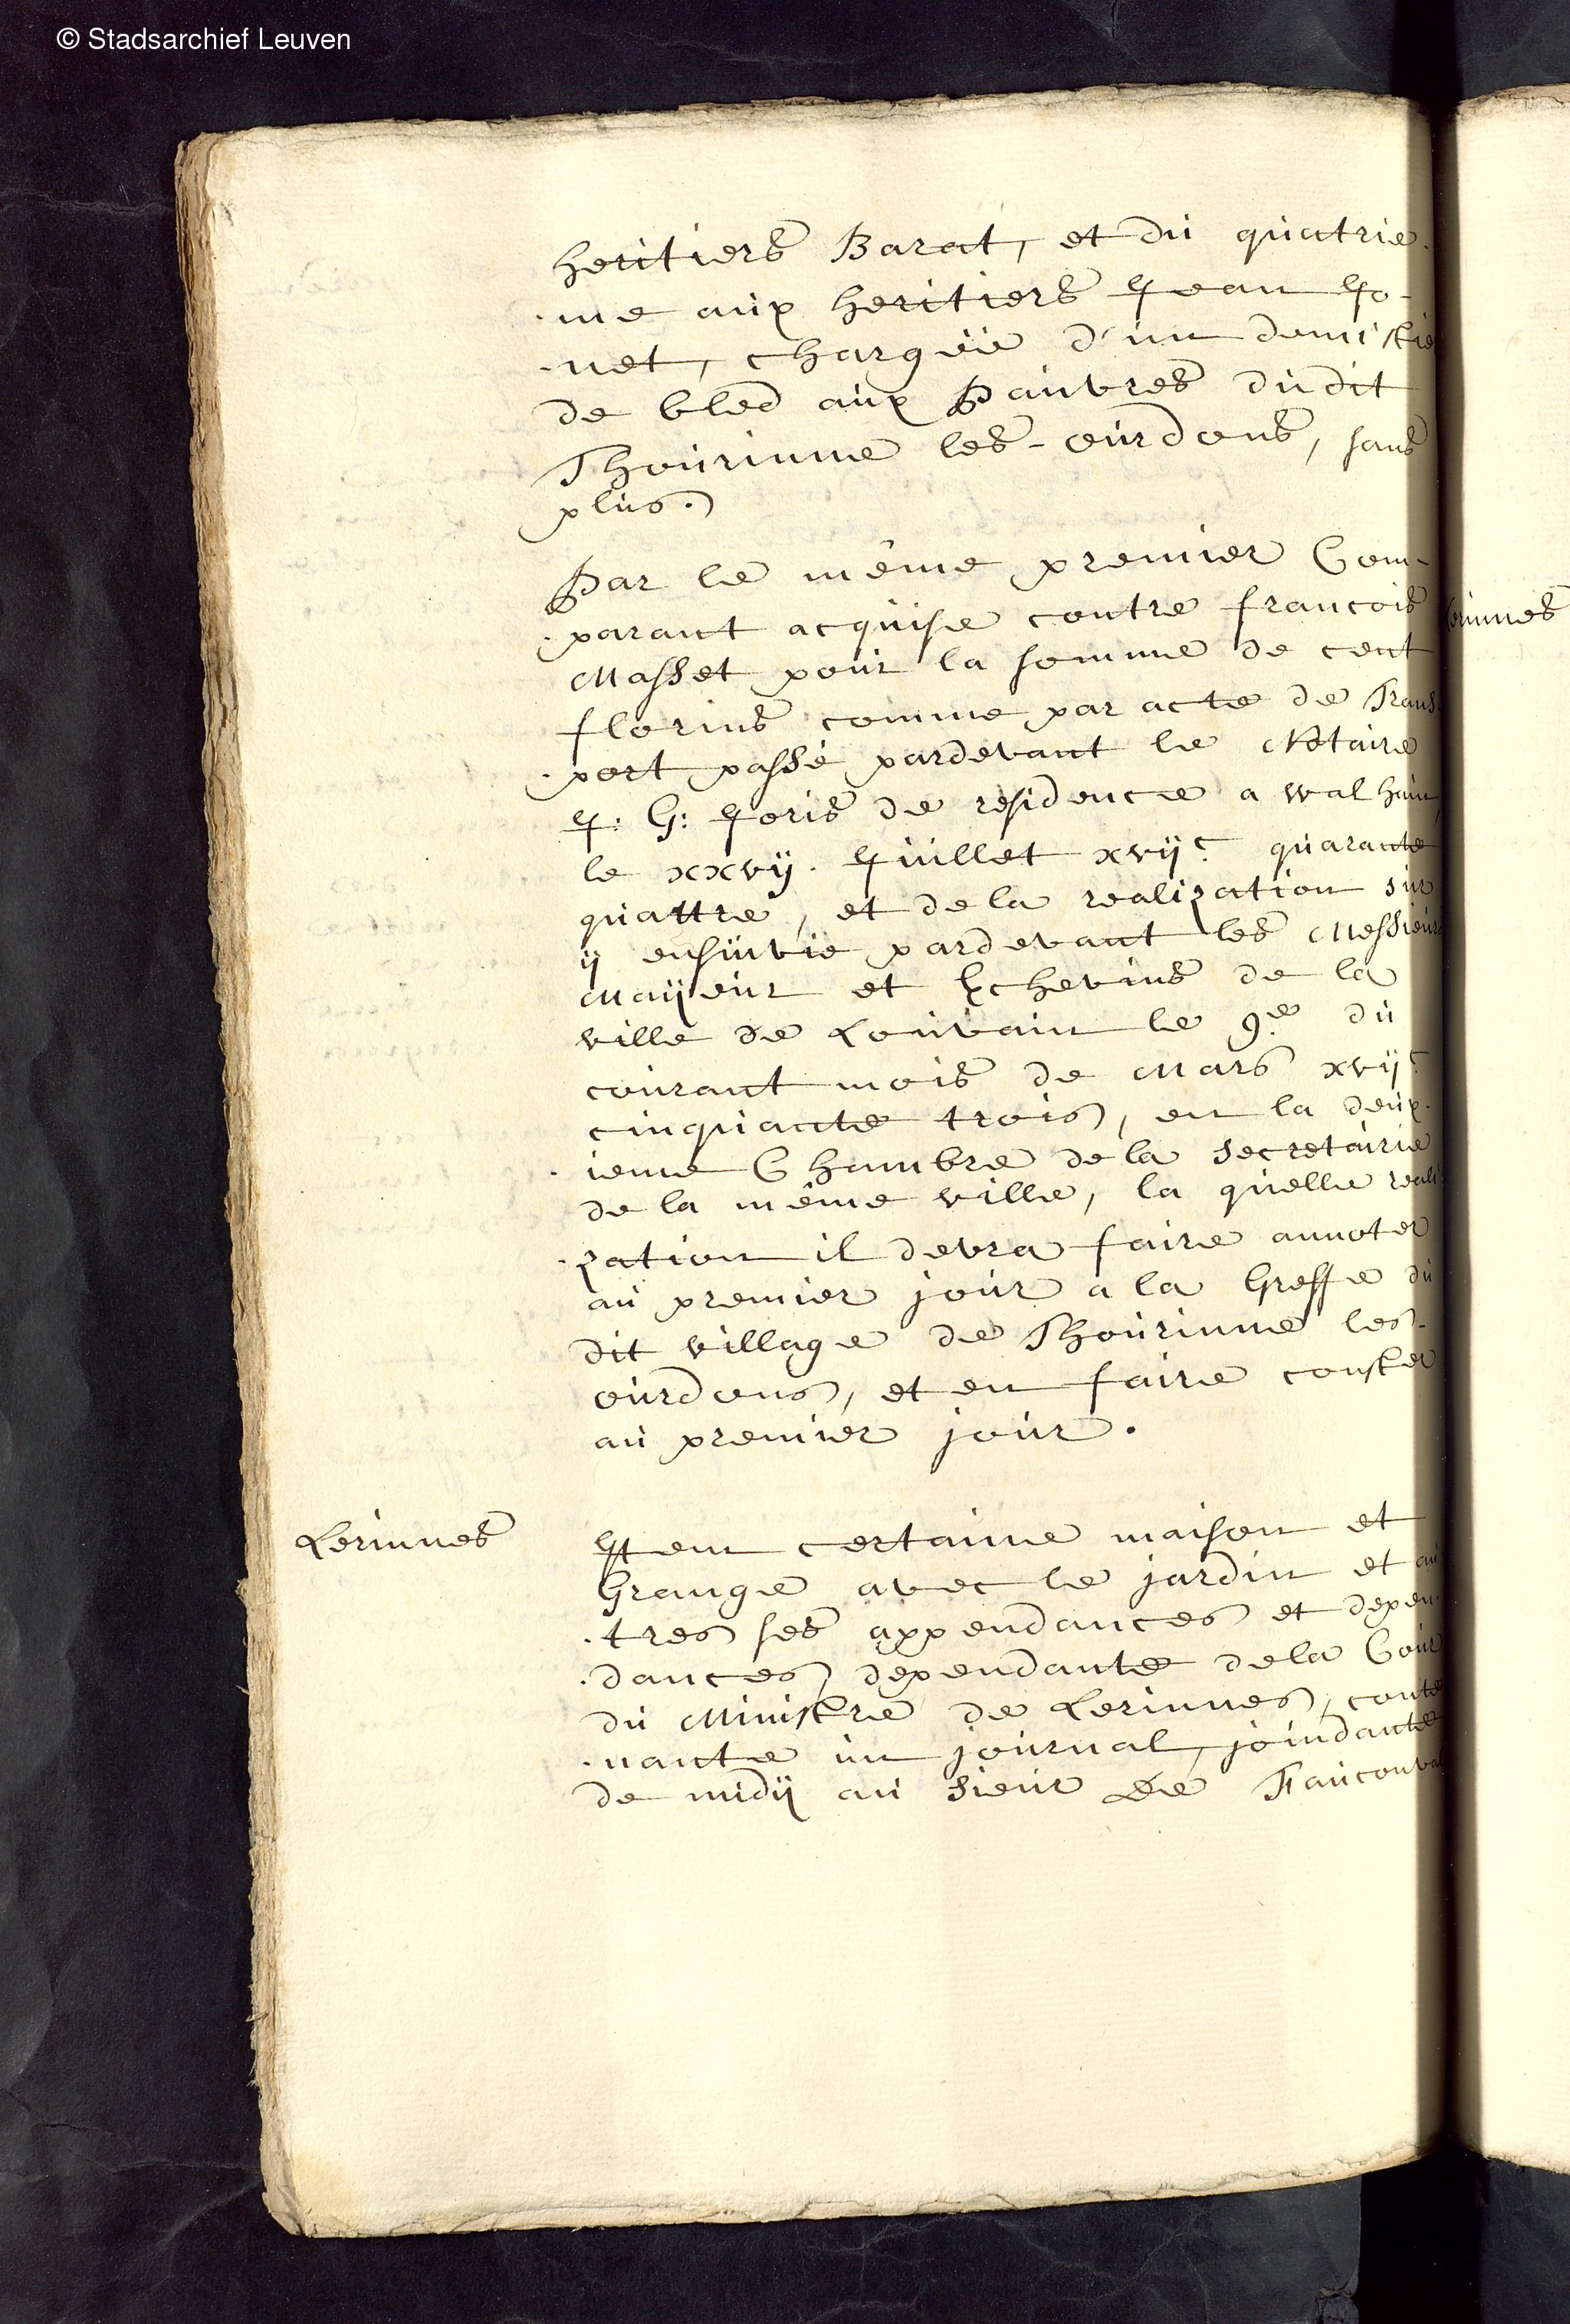 © Stadsarchief Leuven
heritiers Barat, et du quatrie-
-me aux heritiers Jean Jo-
-net, chargée d'un demi stie
de bled aux Pauvres dudit
Thourinne les-ourdons, sans
plus.
Par le même premier Com-
-parant acquise contre francois
Masset pour la somme de cent
florins comme par acte de Trans
-port passé pardevant le Notaire
J: G: Joris de residence a walhain
le xxvij. Juillet xvijc quarante
quattre, et de la realization sur
ij ensuivie pardevant les Messieurs
Maijeur et Echevins de la
ville de Louvain le 9e du
courant mois de Mars xvijc
cinquante trois, en la deux-
-ieme Chambre de la secretairie
de la même ville, la quelle reali
-zation il devra faire annoter
au premier jour a la Greffe du
dit village de Thourinne les-
ourdons, et en faire conster
au premier jour.
Lerinnes
Item certaine maison et
Grange avec le jardin et au
-tres ses appendances et depen
-dances, dependante de la Cour
du Ministre de Lerinnes, conte
-nante un journal, joindante
de midij au sieur De Fauconva